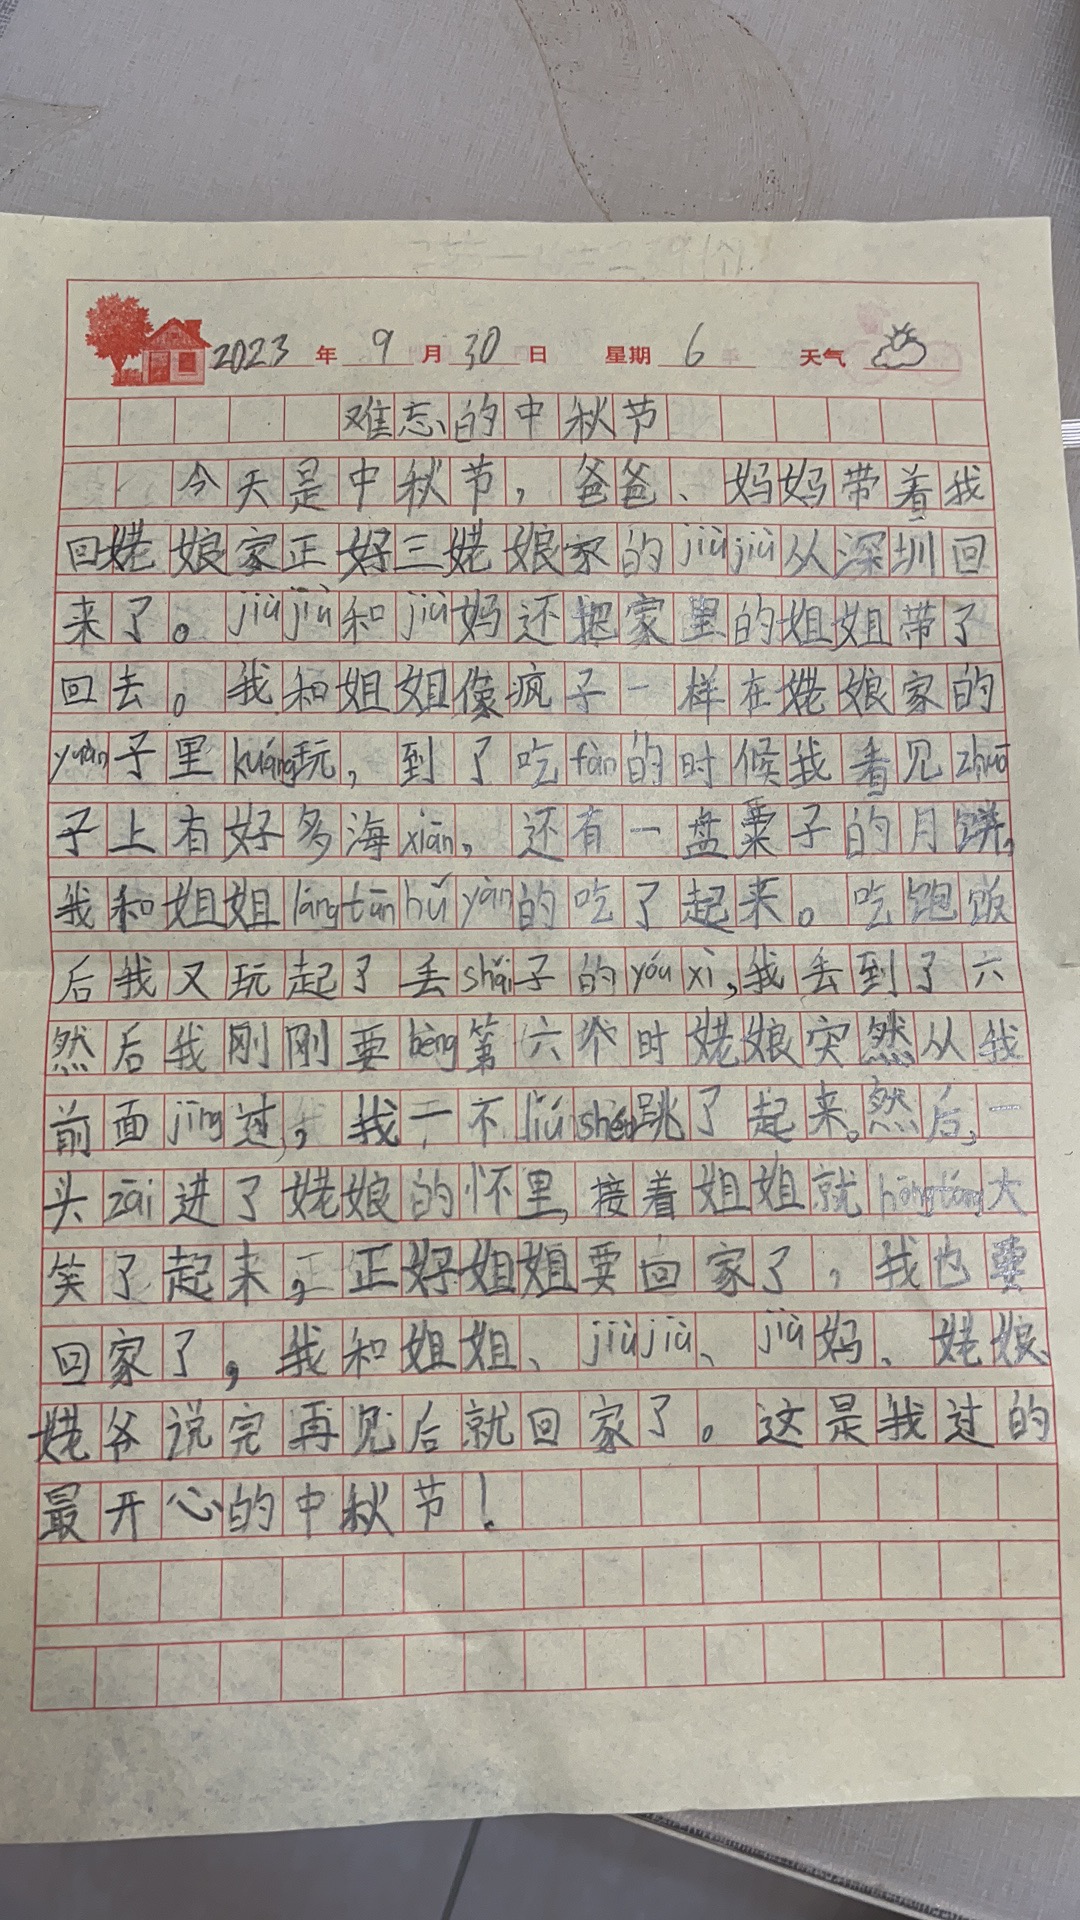 2023 年 9 月 30 日 星期 6 天气
难忘的中秋节
今天是中秋节，爸爸、妈妈带着我
回姥娘家正好三姥娘家的jiùjiù从深圳回
来了。jiùjiù和jiù妈还把家里的姐姐带了
回去。我和姐姐像疯子一样在姥娘家的
yuàn子里kuáng玩，到了吃fàn的时候我看见zhuō
子上有好多海xiān，还有一盘栗子的月饼，
我和姐姐lángtūnhǔyàn的吃了起来。吃饱饭
后我又玩起了丢shǎi子的yóuxì，我丢到了六
然后我刚刚要bèng第六个时姥娘突然从我
前面jīng过，我一不liúshén跳了起来。然后，一
头zāi进了姥娘的怀里，接着姐姐就hōngtáng大
笑了起来，正好姐姐要回家了，我也要
回家了，我和姐姐、jiùjiù、jiù妈、姥娘、
姥爷说完再见后就回家了。这是我过的
最开心的中秋节！